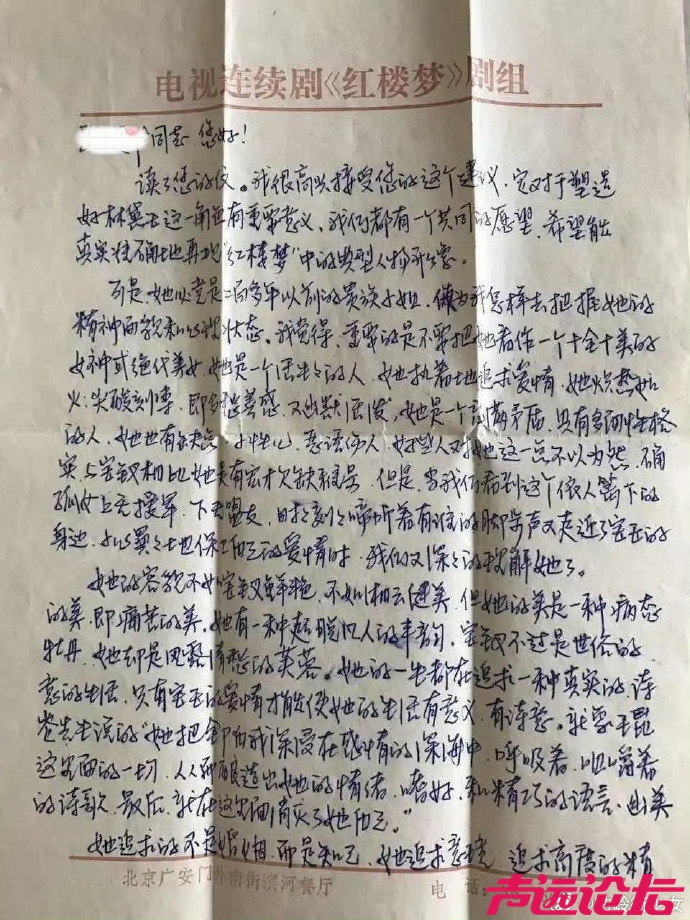 电视连续剧《红楼梦》剧组
同志 您好!
读了您的信。我很高兴接受您的这个建议,它对于塑造
好林黛玉这一角色有重要意义,我们都有一个共同的愿望,希望能
真实准确地再现"红楼梦"中的典型人物形象。
可是,她必竟是二百多年以前的贵族小姐,做为我怎样去把握她的
精神面貌和心理状态。我觉得,重要的是不要把她看作一个十全十美的
女神或绝代美女,她是一个活生生的人,她执着地追求爱情,她炽热如
火,尖酸刻薄,即多愁善感,又幽默活泼,她是一个充满矛盾,具有多种性格
的人,她也有缺点,小性儿,恶语伤人,好些人对她这一点不以为然,确
实,与宝钗相比她大有容才欠缺程度,但是,当我们看到这个依人篱下的
孤女上无援军,下无盟友,时时刻刻啼听着有谁的脚步声又走近了宝玉的
身边,小心翼翼地保卫自己的爱情时,我们又深深的理解她了。
她的容貌不如宝钗鲜艳,不如湘云健美,但她的美是一种病态
的美,即痛苦的美,她有一种超脱凡人的丰韵,宝钗不过是世俗的
牡丹,她却是风露清愁的芙蓉。她的一生都在追求一种真实的诗
意的生活,只有宝玉的爱情才能使她的生活有意义,有诗意。就象王昆
仑先生说的"她把全部自我深浸在感情的深海中,呼吸着,咀嚼着
这里面的一切,从那里酿造出她的情绪,嗜好,和精巧的语言,幽美
的诗歌,最后,就在这里面消灭了她自己。"
她追求的不是婚姻,而是知己,她追求意境,追求高度的精
北京广安门外南街滨河餐厅
电 话
声远论坛